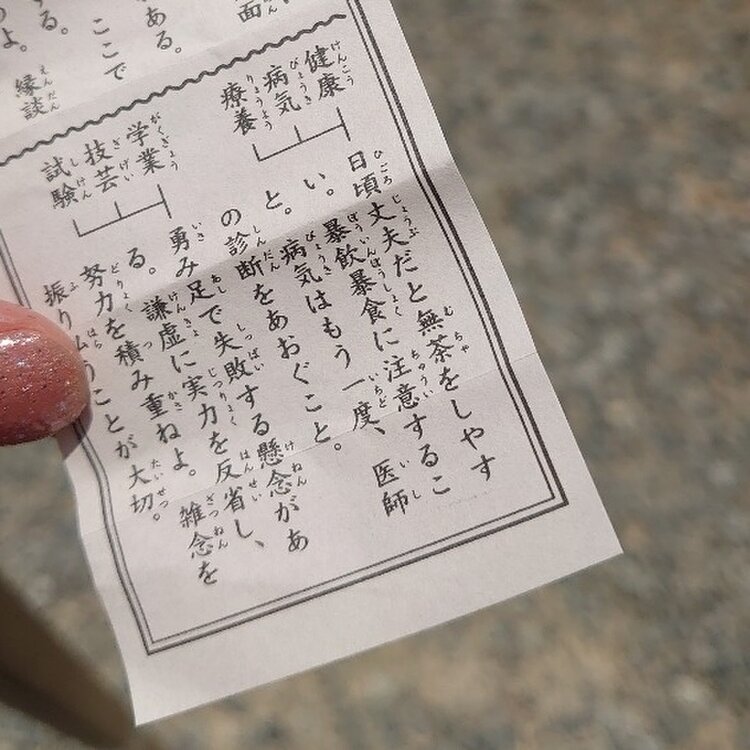 面
ある。
ここで
る。
よ。
縁談
健康
病気
療養
日頃丈夫だと無茶をしやす
い。暴飲暴食に注意するこ
と。病気はもう一度、医師
の診断をあおぐこと。
学業
技芸
試験
勇み足で失敗する懸念があ
る。謙虚に実力を反省し、
努力を積み重ねよ。雑念を
振り払うことが大切。